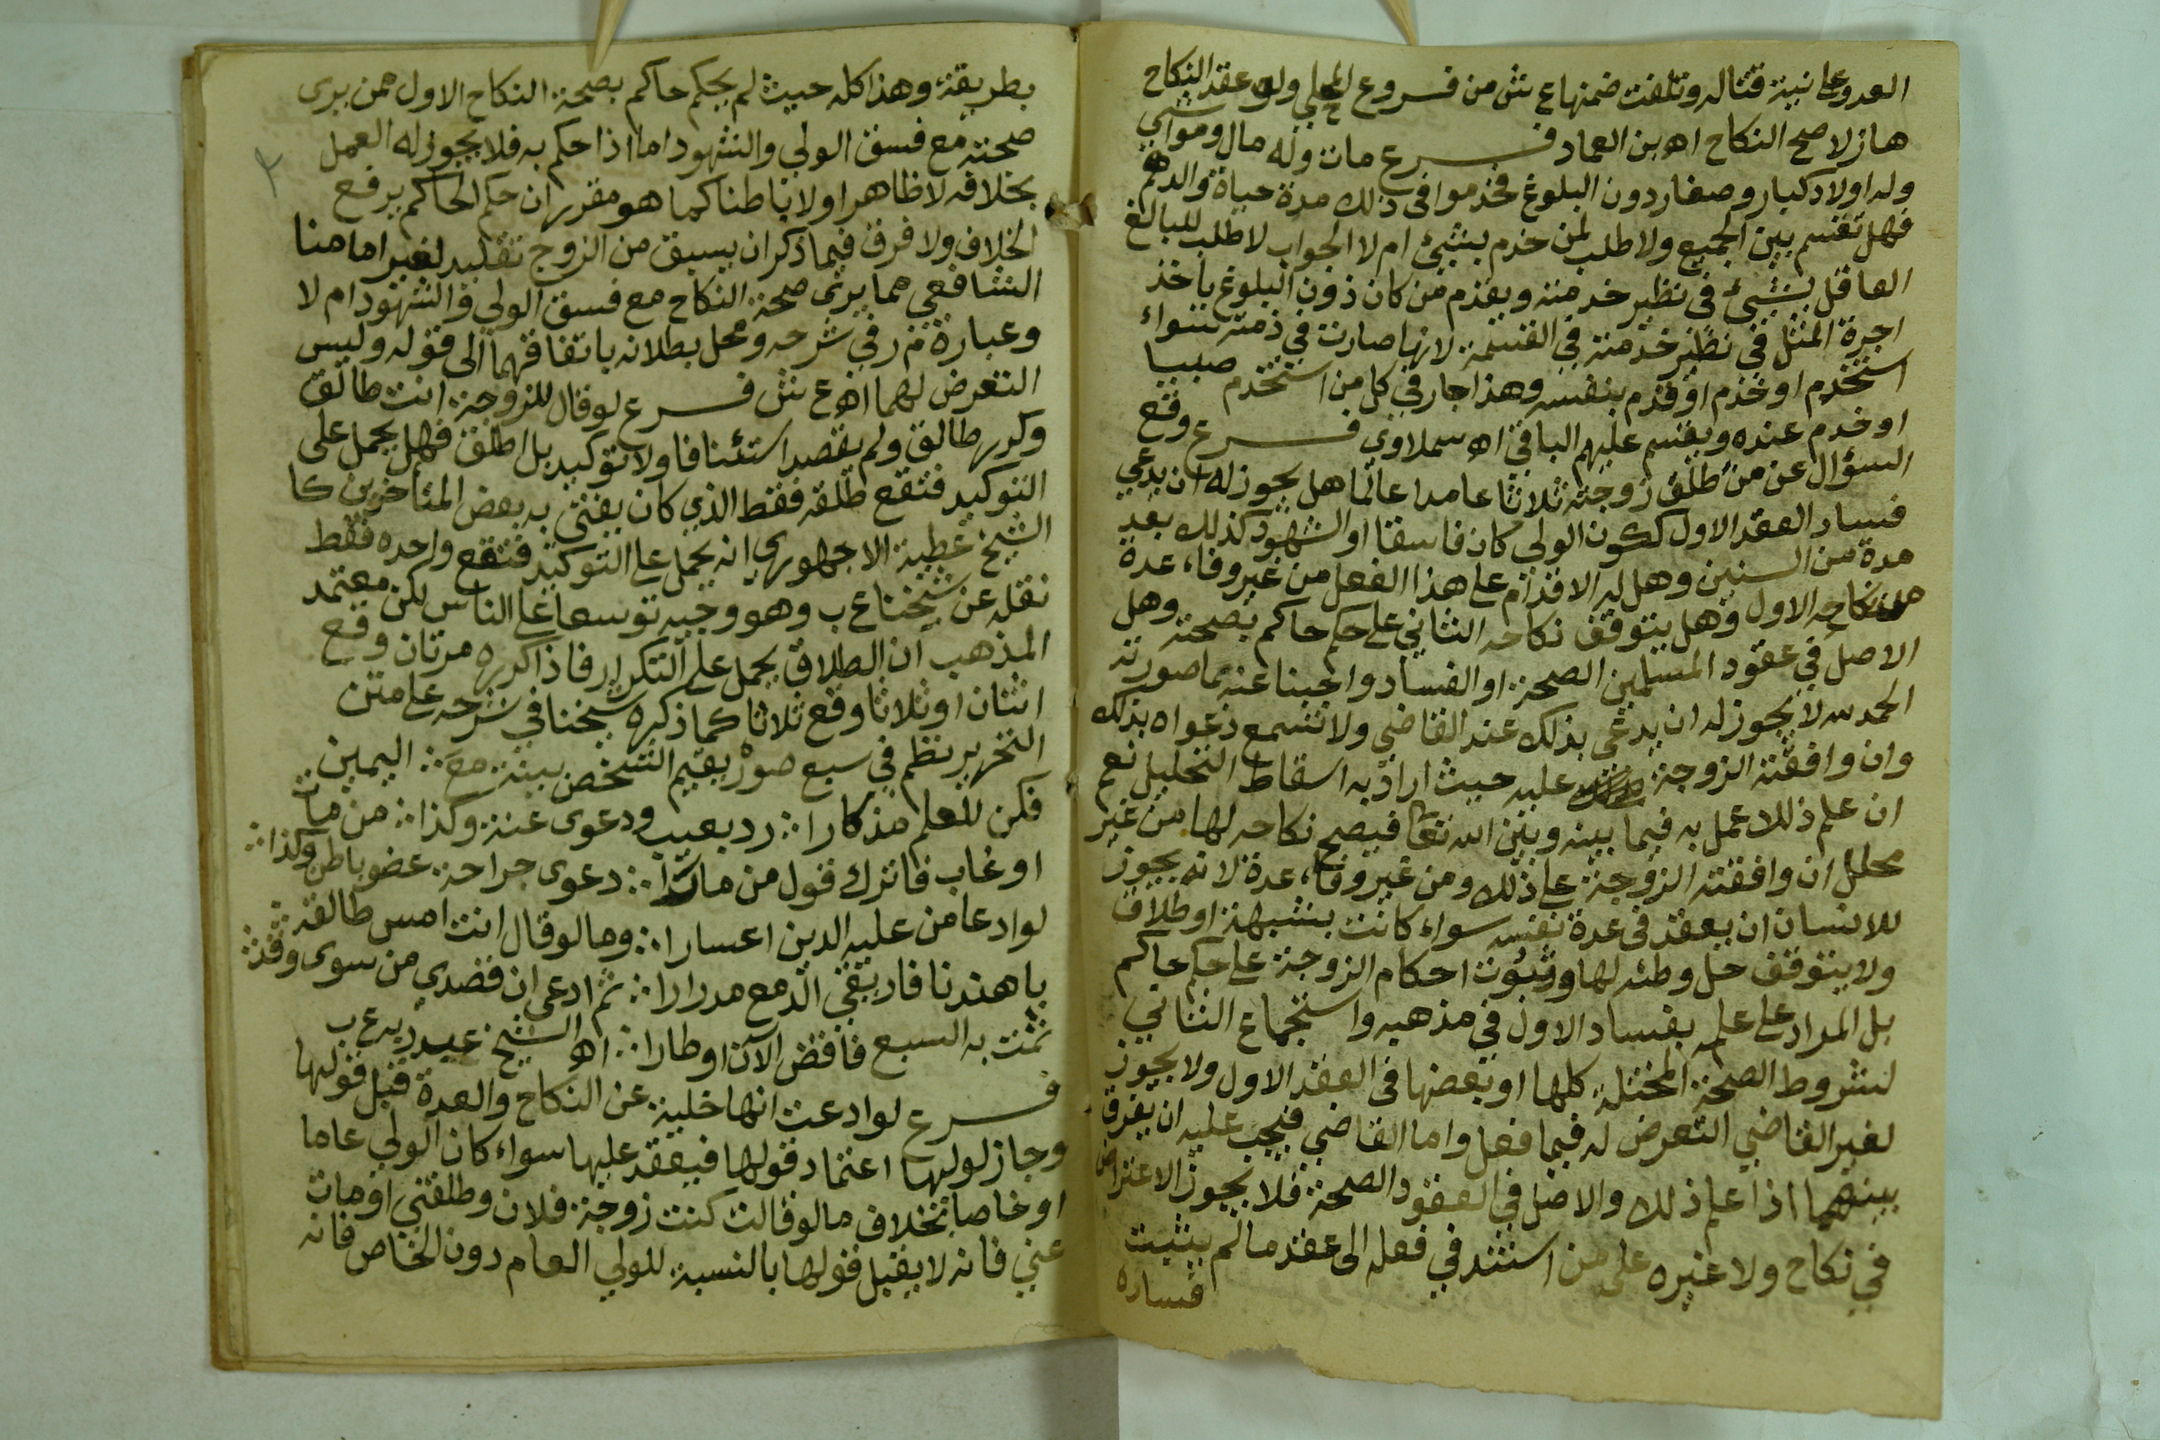 العدو على نية قتاله وتلفت ضمنها ع ش من فروع المحلي ولو عقد النكاح
هازلا صح النكاح اه بن العماد فرع مات وله مال ومواشي
وله اولاد كبار وصغار دون البلوغ فخدموا في ذلك مدة حياة والدهم
فهل تقسم بين الجميع ولا طلب لمن خدم بشيئ ام لا الجواب لا طلب للبالغ
العاقل بشيئ في نظير خدمته ويقدم من كان دون البلوغ باخذ
اجرة المثل في نظير خدمته في القسمة لانها صارت في ذمته سواء
استخدم او خدم او قدم بنفسه وهذا جار في كل من استخدم صبيا
او خدم عنده ويقسم عليهم الباقي اه سملاوي فرع وقع
السؤال عن من طلق زوجته ثلاثا عامدا عالما هل يجوز له ان يدعي
فساد العقد الاول ككون الولي كان فاسقا او الشهود كذلك بعد
مدة من السنين وهل له الاقدام على هذا الفعل من غير وفاء عدة
من نكاحه الاول وهل يتوقف نكاحه الثاني على حكم حاكم بصحته وهل
الاصل في عقود المسلمين الصحة او الفساد واجبنا عنه بما صورته
الحمد لله لا يجوز له ان يدعى بذلك عند القاضي ولا تسمع دعواه بذلك
وان وافقته الزوجة عليه حيث اراد به اسقاط التحليل نعم
ان علم ذلك عمل به فيما بينه وبين الله تعا فيصح نكاحه لها من غير
محلل ان وافقته الزوجة على ذلك ومن غير وفاء عدة لانه يجوز
للانسان ان يعقد في عدة نفسه سواء كانت بشبهة او طلاق
ولا يتوقف حل وطئه لها وثبوت احكام الزوجة على حكم حاكم
بل المراد على علمه بفساد الاول في مذهبه واستجماع الثاني
لشروط الصحة المختلة كلها او بعضها في العقد الاول ولا يجوز
لغير القاضي التعرض له فيما فعل واما القاضي فيجب عليه ان يفرق
بينهما اذا علم ذلك والاصل في العقود الصحة فلا يجوز الاعتراض
في نكاح ولا غيره على من استند في فعله الى عقد ما لم يثبت
فساده
بطريقة وهذا كله حيث لم يحكم حاكم بصحة النكاح الاول ممن يرى
صحته مع فسق الولي والشهود اما اذا حكم به فلا يجوز له العمل
بخلافه لا ظاهرا ولا باطنا كما هو مقرر ان حكم الحاكم يرفع
الخلاف ولا فرق فيما ذكر ان يسبق من الزوج تقليد لغير امامنا
الشافعي مما يرى صحة النكاح مع فسق الولي والشهود ام لا
وعبارة م ر في شرحه ومحل بطلانه باتفاقهما الى قوله وليس
التعرض لهما اه ع ش فرع لو قال للزوجة انت طالق
وكرر طالق ولم يقصد استئنافا ولا توكيد بل اطلق فهل يحمل على
التوكيد فتقع طلقه فقط الذي كان يفتى به بعض المتأخرين كا
الشيخ عطية الاجهوري انه يحمل على التوكيد فتقع واحده فقط
نقله عن شيخنا ع ب وهو وجيه توسعا على الناس لكن معتمد
المذهب ان الطلاق يحمل على التكرار فاذا كرره مرتان وقع
اثنتان او ثلاثا وقع ثلاثا كما ذكره شيخنا في شرحه على متن
التحرير نظم في سبع صور يقيم الشخص بينة مع ∴ اليمين
فكن للعلم مذكارا ∴ رد بعيب ودعوى عنة وكذا ∴ من مات
او غاب فاترك قول من مارا ∴ دعوى جراحة عضو باطن وكذا ∴
لو ادعا من عليه الدين اعسارا ∴ وما لو قال انت امس طالقة ∴
يا هندنا فاريقي الدمع مدرارا ∴ ثم ادعى ان قصدي من سوى وقد ∴
تمت به السبع فاقض الآن اوطارا ∴ اه الشيخ عيد ع ب
فرع لو ادعت انها خلية عن النكاح والعدة قبل قولها
وجاز لوليها اعتماد قولها فيعقد عليها سواء كان الولي عاما
او خاصا بخلاف ما لو قالت كنت زوجة فلان وطلقني او مات
عني فانه لا يقبل قولها بالنسبة للولي العام دون الخاص فانه